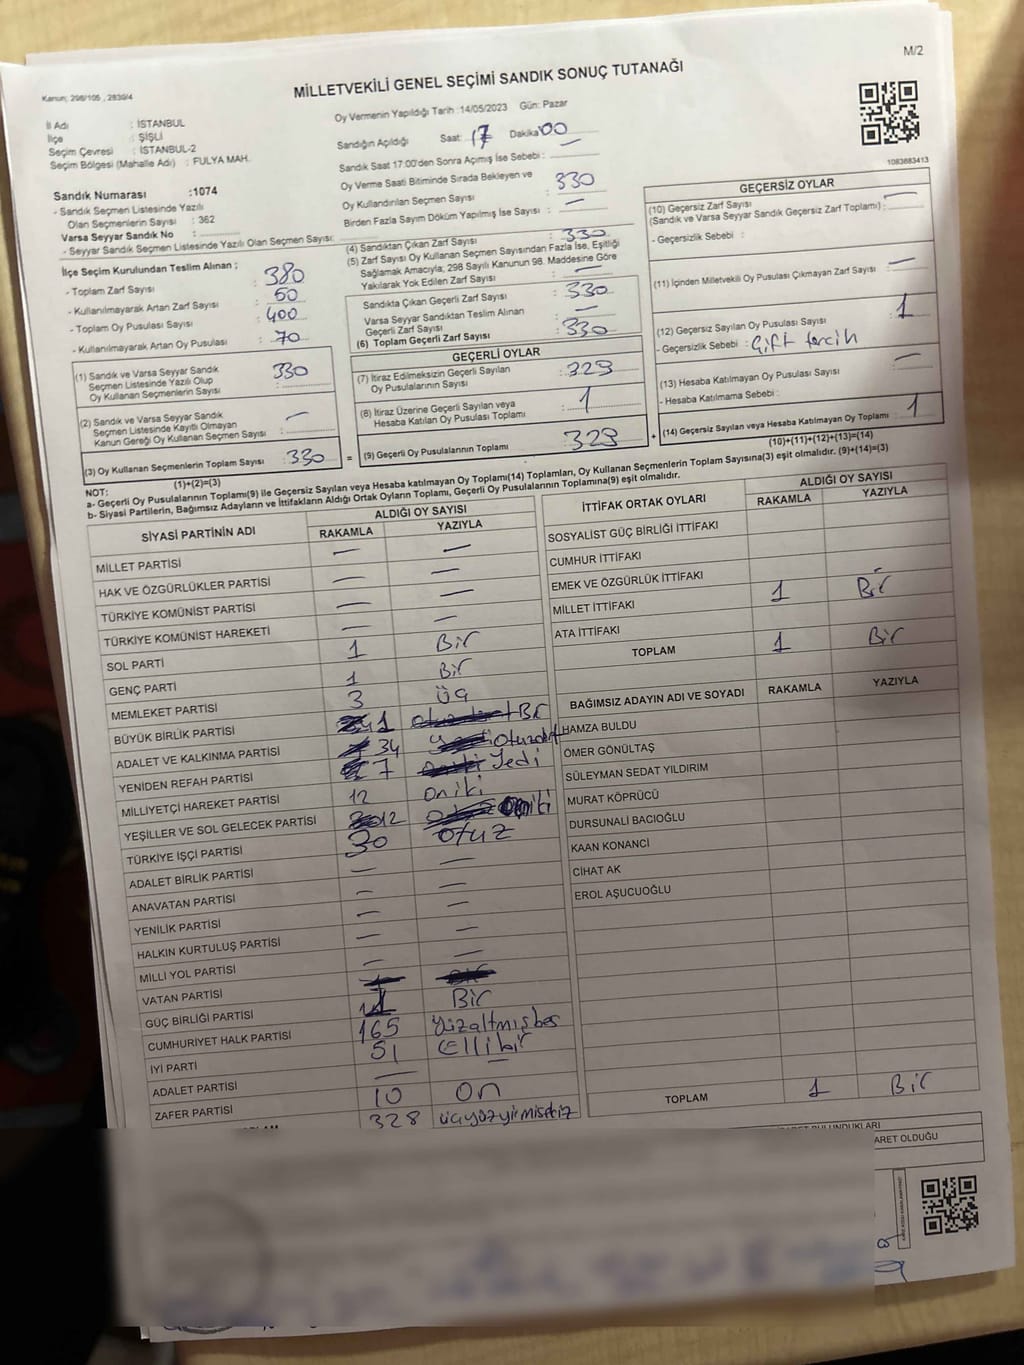 M/2
MİLLETVEKİLİ GENEL SEÇİMİ SANDIK SONUÇ TUTANAĞI
Kanun; 298/105 , 2839/4
İl Adı : İSTANBUL
İlçe : ŞİŞLİ
Seçim Çevresi : İSTANBUL-2
Seçim Bölgesi (Mahalle Adı) : FULYA MAH.
Oy Vermenin Yapıldığı Tarih :14/05/2023 Gün: Pazar
Sandığın Açıldığı Saat: 17 Dakika 00
Sandık Saat 17:00'den Sonra Açımış İse Sebebi : —
Oy Verme Saati Bitiminde Sırada Bekleyen ve
Oy Kullandırılan Seçmen Sayısı : 330
Birden Fazla Sayım Döküm Yapılmış İse Sayısı : —
1083883413
Sandık Numarası :1074
- Sandık Seçmen Listesinde Yazılı
Olan Seçmenlerin Sayısı : 362
Varsa Seyyar Sandık No :
- Seyyar Sandık Seçmen Listesinde Yazılı Olan Seçmen Sayısı:
İlçe Seçim Kurulundan Teslim Alınan ;
- Toplam Zarf Sayısı : 380
- Kullanılmayarak Artan Zarf Sayısı : 50
- Toplam Oy Pusulası Sayısı : 400
- Kullanılmayarak Artan Oy Pusulası : 70
(1) Sandık ve Varsa Seyyar Sandık
Seçmen Listesinde Yazılı Olup
Oy Kullanan Seçmenlerin Sayısı : 330
(2) Sandık ve Varsa Seyyar Sandık
Seçmen Listesinde Kayıtlı Olmayan
Kanun Gereği Oy Kullanan Seçmen Sayısı : —
(3) Oy Kullanan Seçmenlerin Toplam Sayısı : 330
(1)+(2)=(3)
(4) Sandıktan Çıkan Zarf Sayısı : 330
(5) Zarf Sayısı Oy Kullanan Seçmen Sayısından Fazla İse, Eşitliği
Sağlamak Amacıyla; 298 Sayılı Kanunun 98. Maddesine Göre
Yakılarak Yok Edilen Zarf Sayısı : —
Sandıkta Çıkan Geçerli Zarf Sayısı : 330
Varsa Seyyar Sandıktan Teslim Alınan
Geçerli Zarf Sayısı : —
(6) Toplam Geçerli Zarf Sayısı : 330
GEÇERLİ OYLAR
(7) İtiraz Edilmeksizin Geçerli Sayılan
Oy Pusulalarının Sayısı : 329
(8) İtiraz Üzerine Geçerli Sayılan veya
Hesaba Katılan Oy Pusulası Toplamı : 1
= (9) Geçerli Oy Pusulalarının Toplamı : 329
GEÇERSİZ OYLAR
(10) Geçersiz Zarf Sayısı
(Sandık ve Varsa Seyyar Sandık Geçersiz Zarf Toplamı) : —
- Geçersizlik Sebebi :
(11) İçinden Milletvekili Oy Pusulası Çıkmayan Zarf Sayısı : —
(12) Geçersiz Sayılan Oy Pusulası Sayısı : 1
- Geçersizlik Sebebi : Çift tercih
(13) Hesaba Katılmayan Oy Pusulası Sayısı : —
- Hesaba Katılmama Sebebi :
+ (14) Geçersiz Sayılan veya Hesaba Katılmayan Oy Toplamı : 1
(10)+(11)+(12)+(13)=(14)
NOT:
a- Geçerli Oy Pusulalarının Toplamı(9) ile Geçersiz Sayılan veya Hesaba katılmayan Oy Toplamı(14) Toplamları, Oy Kullanan Seçmenlerin Toplam Sayısına(3) eşit olmalıdır. (9)+(14)=(3)
b- Siyasi Partilerin, Bağımsız Adayların ve İttifakların Aldığı Ortak Oyların Toplamı, Geçerli Oy Pusulalarının Toplamına(9) eşit olmalıdır.
SİYASİ PARTİNİN ADI ALDIĞI OY SAYISI
RAKAMLA YAZIYLA
MİLLET PARTİSİ — —
HAK VE ÖZGÜRLÜKLER PARTİSİ — —
TÜRKİYE KOMÜNİST PARTİSİ — —
TÜRKİYE KOMÜNİST HAREKETİ — —
SOL PARTİ 1 Bir
GENÇ PARTİ 1 Bir
MEMLEKET PARTİSİ 3 Üç
BÜYÜK BİRLİK PARTİSİ 1 Bir
ADALET VE KALKINMA PARTİSİ 34 Otuzdört
YENİDEN REFAH PARTİSİ 7 Yedi
MİLLİYETÇİ HAREKET PARTİSİ 12 Oniki
YEŞİLLER VE SOL GELECEK PARTİSİ 12 Oniki
TÜRKİYE İŞÇİ PARTİSİ 30 Otuz
ADALET BİRLİK PARTİSİ — —
ANAVATAN PARTİSİ — —
YENİLİK PARTİSİ — —
HALKIN KURTULUŞ PARTİSİ — —
MİLLİ YOL PARTİSİ — —
VATAN PARTİSİ
GÜÇ BİRLİĞİ PARTİSİ 1 Bir
CUMHURİYET HALK PARTİSİ 165 Yüzaltmışbeş
İYİ PARTİ 51 Ellibir
ADALET PARTİSİ — —
ZAFER PARTİSİ 10 On
328 üçyüzyirmisekiz
İTTİFAK ORTAK OYLARI ALDIĞI OY SAYISI
RAKAMLA YAZIYLA
SOSYALİST GÜÇ BİRLİĞİ İTTİFAKI
CUMHUR İTTİFAKI
EMEK VE ÖZGÜRLÜK İTTİFAKI
MİLLET İTTİFAKI 1 Bir
ATA İTTİFAKI
TOPLAM 1 Bir
BAĞIMSIZ ADAYIN ADI VE SOYADI RAKAMLA YAZIYLA
HAMZA BULDU
ÖMER GÖNÜLTAŞ
SÜLEYMAN SEDAT YILDIRIM
MURAT KÖPRÜCÜ
DURSUNALİ BACIOĞLU
KAAN KONANCİ
CİHAT AK
EROL AŞUCUOĞLU
TOPLAM 1 Bir
ARET OLDUĞU